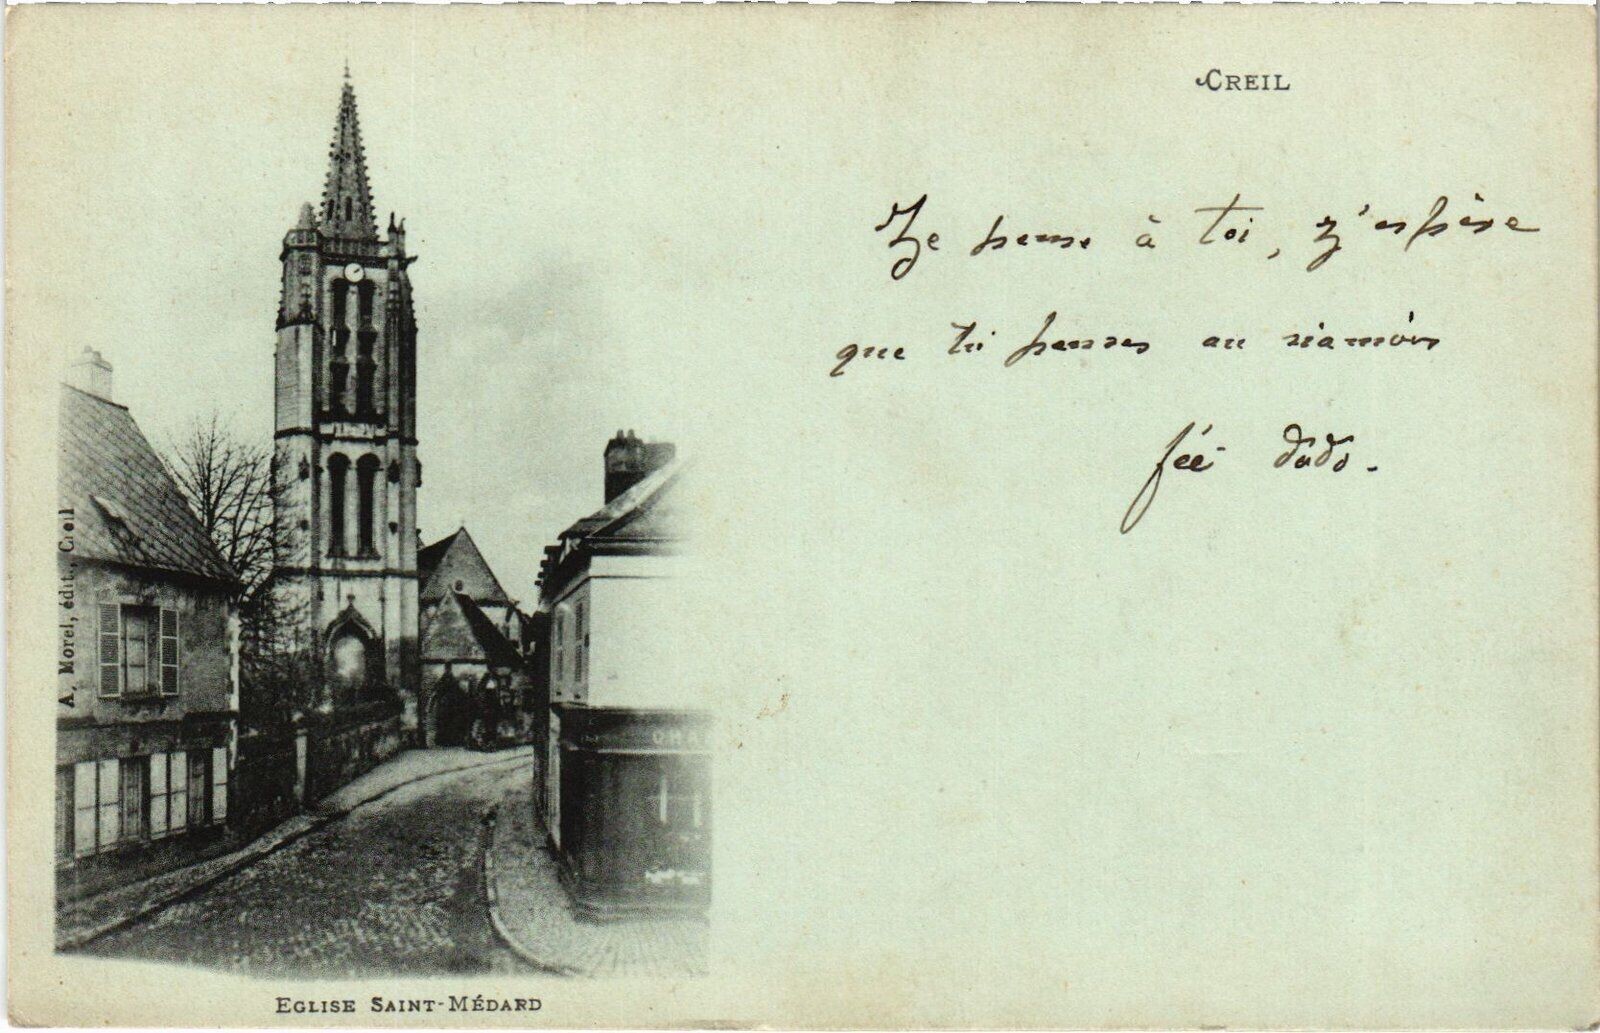 CREIL
Je pense à toi, j'espère
que tu penses au siamois
fée dodo.
A. Morel, édit., Creil
EGLISE SAINT-MÉDARD